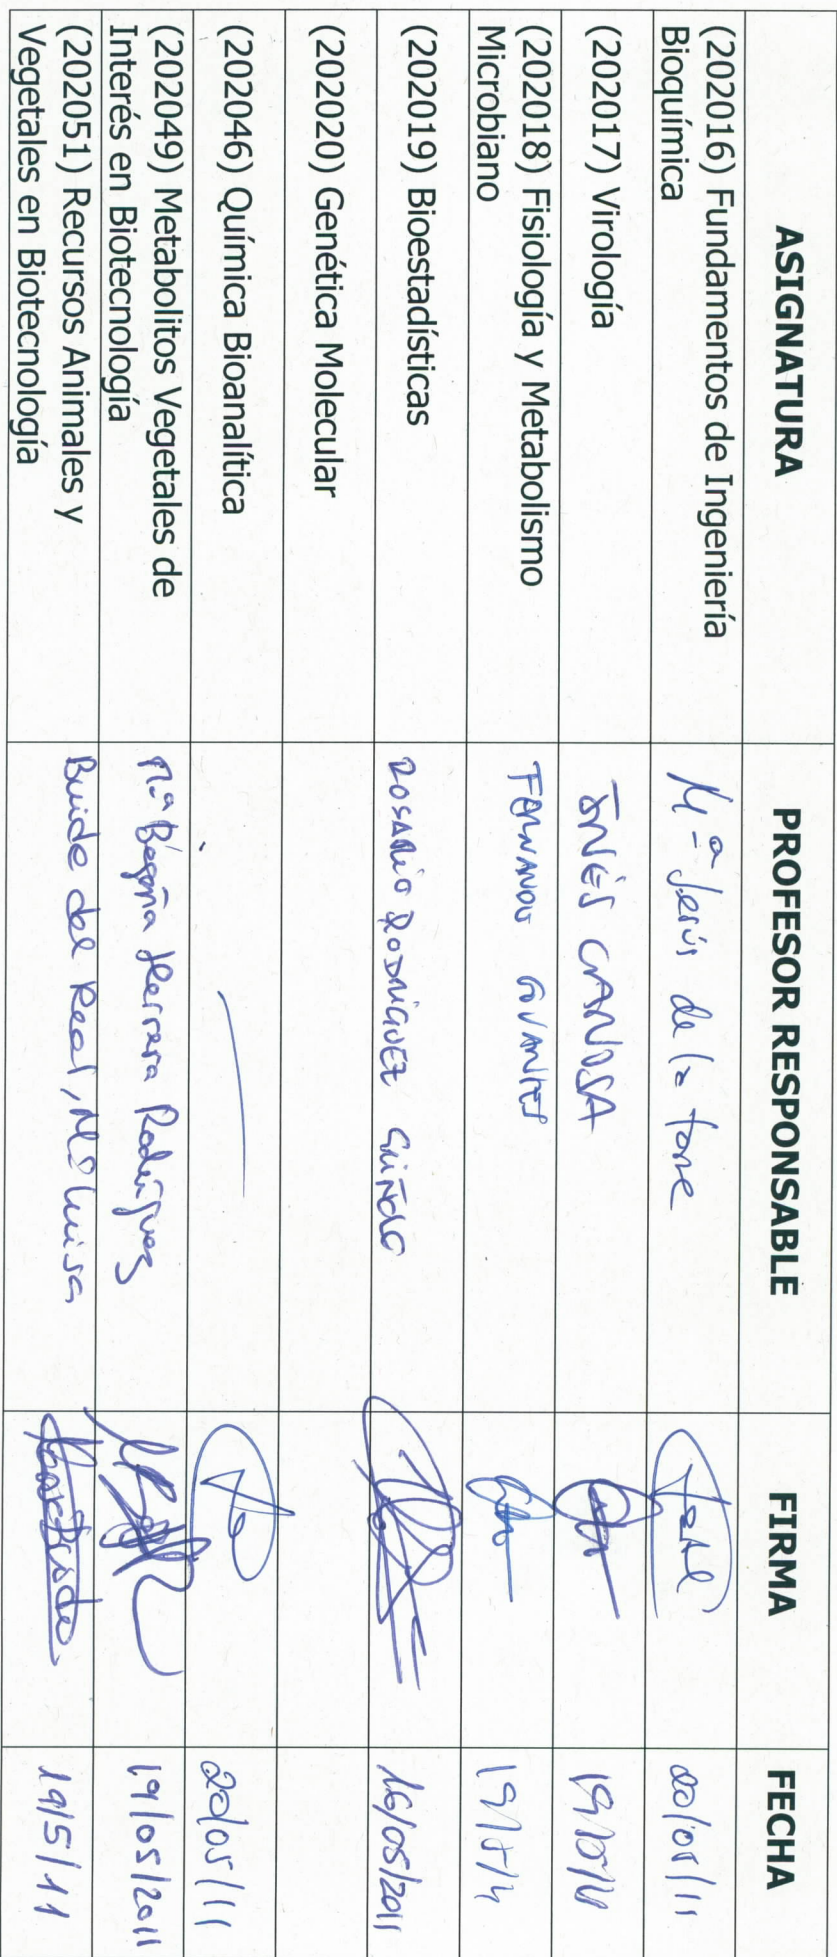 ASIGNATURA PROFESOR RESPONSABLE FIRMA FECHA
(202016) Fundamentos de Ingeniería
Bioquímica
Mª Jesús de la Torre 20/05/11
(202017) Virología INÉS CANOSA 19/05/11
(202018) Fisiología y Metabolismo
Microbiano
FERNANDO GOVANTES 19/5/11
(202019) Bioestadísticas ROSARIO RODRIGUEZ GRIÑOLO 16/05/2011
(202020) Genética Molecular
(202046) Química Bioanalítica 20/05/11
(202049) Metabolitos Vegetales de
Interés en Biotecnología
Mª Begoña Herrera Rodríguez 19/05/2011
(202051) Recursos Animales y
Vegetales en Biotecnología
Buide del Real, Mª Luisa 19/5/11